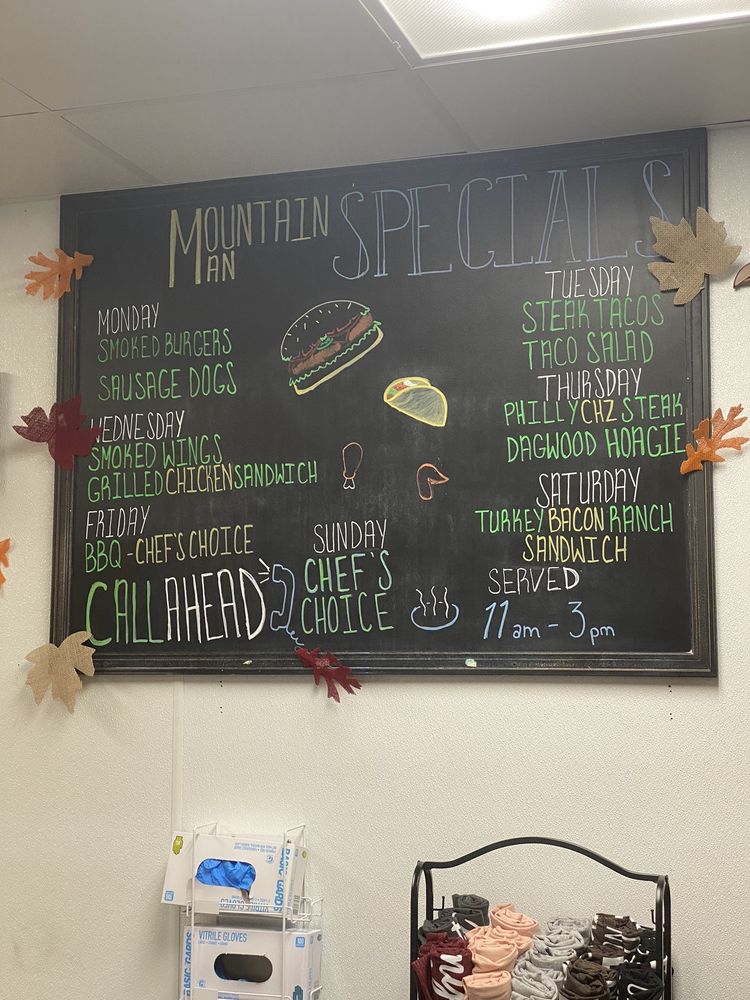 MOUNTAIN
MAN
SPECIALS
MONDAY
SMOKED BURGERS
SAUSAGE DOGS
WEDNESDAY
SMOKED WINGS
GRILLED CHICKEN SANDWICH
FRIDAY
BBQ - CHEF'S CHOICE
CALL AHEAD
SUNDAY
CHEF'S
CHOICE
TUESDAY
STEAK TACOS
TACO SALAD
THURSDAY
PHILLY CHZ STEAK
DAGWOOD HOAGIE
SATURDAY
TURKEY BACON RANCH
SANDWICH
SERVED
11am - 3pm
VITRILE GLOVES
BASIC GARDS
VITRILE GLOVES
BASIC GARDS